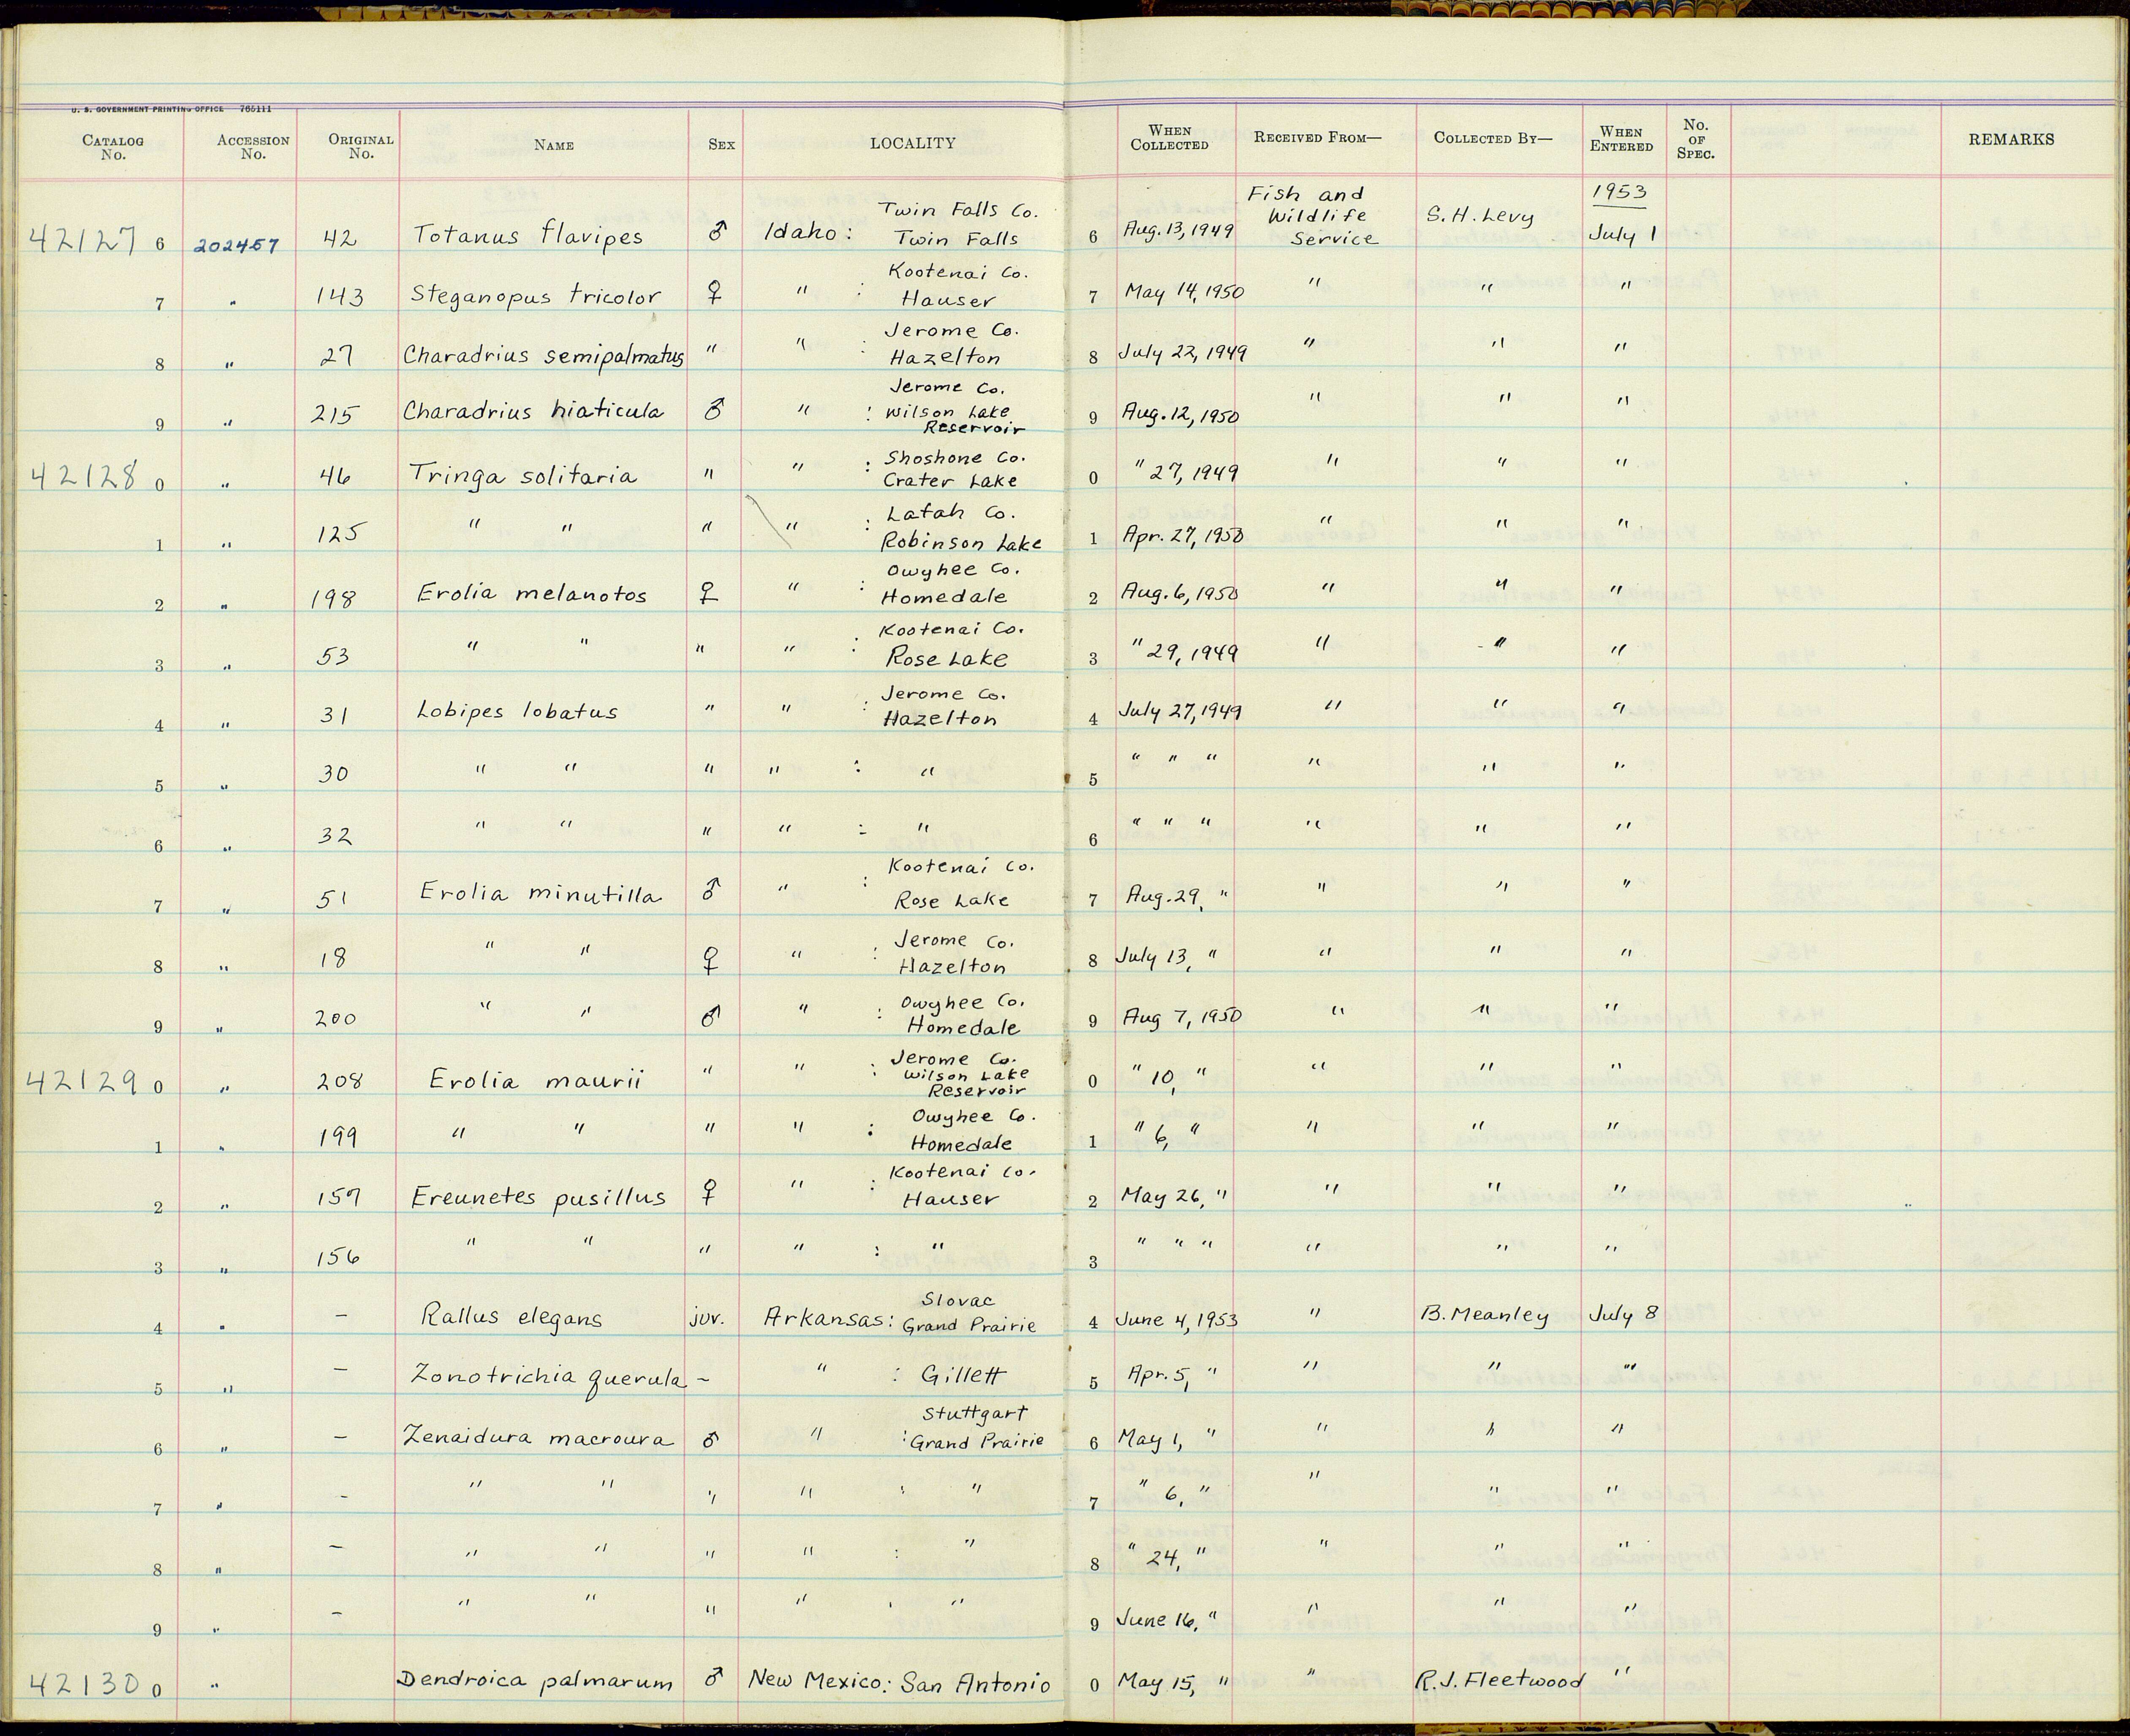 U. S. GOVERNMENT PRINTING OFFICE 765111
CATALOG No. ACCESSION No. ORIGINAL No. NAME SEX LOCALITY WHEN COLLECTED RECEIVED FROM— COLLECTED BY— WHEN ENTERED No. OF SPEC. REMARKS
42127 6 202457 42 Totanus flavipes ♂ Idaho: Twin Falls Co. Twin Falls 6 Aug. 13, 1949 Fish and Wildlife Service S. H. Levy 1953 July 1
7 " 143 Steganopus tricolor ♀ " : Kootenai Co. Hauser 7 May 14, 1950 " " "
8 " 27 Charadrius semipalmatus " " : Jerome Co. Hazelton 8 July 22, 1949 " " "
9 " 215 Charadrius hiaticula ♂ " : Jerome Co. Wilson Lake Reservoir 9 Aug. 12, 1950 " " "
42128 0 " 46 Tringa solitaria " " : Shoshone Co. Crater Lake 0 " 27, 1949 " " "
1 " 125 " " " " : Latah Co. Robinson Lake 1 Apr. 27, 1950 " " "
2 " 198 Erolia melanotos ♀ " : Owyhee Co. Homedale 2 Aug. 6, 1950 " " "
3 " 53 " " " " : Kootenai Co. Rose Lake 3 " 29, 1949 " " "
4 " 31 Lobipes lobatus " " : Jerome Co. Hazelton 4 July 27, 1949 " " "
5 " 30 " " " " : " 5 " " " " " "
6 " 32 " " " " : " 6 " " " " " "
7 " 51 Erolia minutilla ♂ " : Kootenai Co. Rose Lake 7 Aug. 29, " " " "
8 " 18 " " ♀ " : Jerome Co. Hazelton 8 July 13, " " " "
9 " 200 " " ♂ " : Owyhee Co. Homedale 9 Aug 7, 1950 " " "
42129 0 " 208 Erolia maurii " " : Jerome Co. Wilson Lake Reservoir 0 " 10, " " " "
1 " 199 " " " " : Owyhee Co. Homedale 1 " 6, " " " "
2 " 157 Ereunetes pusillus ♀ " : Kootenai Co. Hauser 2 May 26, " " " "
3 " 156 " " " " : " 3 " " " " " "
4 " — Rallus elegans juv. Arkansas: Slovac Grand Prairie 4 June 4, 1953 " B. Meanley July 8
5 " — Zonotrichia querula – " : Gillett 5 Apr. 5, " " " "
6 " — Zenaidura macroura ♂ " : Stuttgart Grand Prairie 6 May 1, " " " "
7 " – " " " " : " 7 " 6, " " " "
8 " — " " " " : " 8 " 24, " " " "
9 " — " " " " : " 9 June 16, " " " "
42130 0 " Dendroica palmarum ♂ New Mexico: San Antonio 0 May 15, " " R. J. Fleetwood "